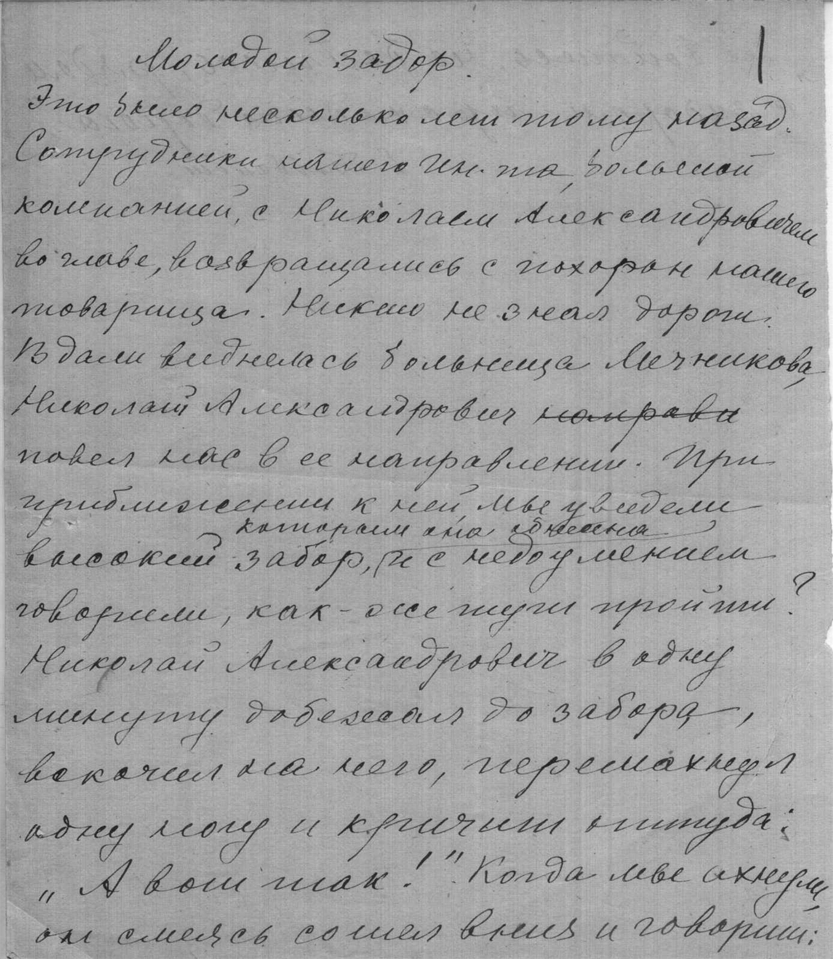 Молодой задор.
1
Это было несколько лет тому назад.
Сотрудники нашего Ин-та, большой
компанией, с Николаем Александровичем
во главе, возвращались с похорон нашего
товарища. Никто не знал дороги.
Вдали виднелась больница Мечникова,
Николай Александрович направи
повел нас в ее направлении. При
приближении к ней, мы увидели
которым она обнесена
высокий забор, и с недоумением
говорили, как-же тут пройти?
Николай Александрович в одну
минуту добежал до забора,
вскочил на него, перемахнул
одну ногу и кричит оттуда:
„А вот так!" Когда мы ахнули,
он смеясь сошел вниз и говорит: